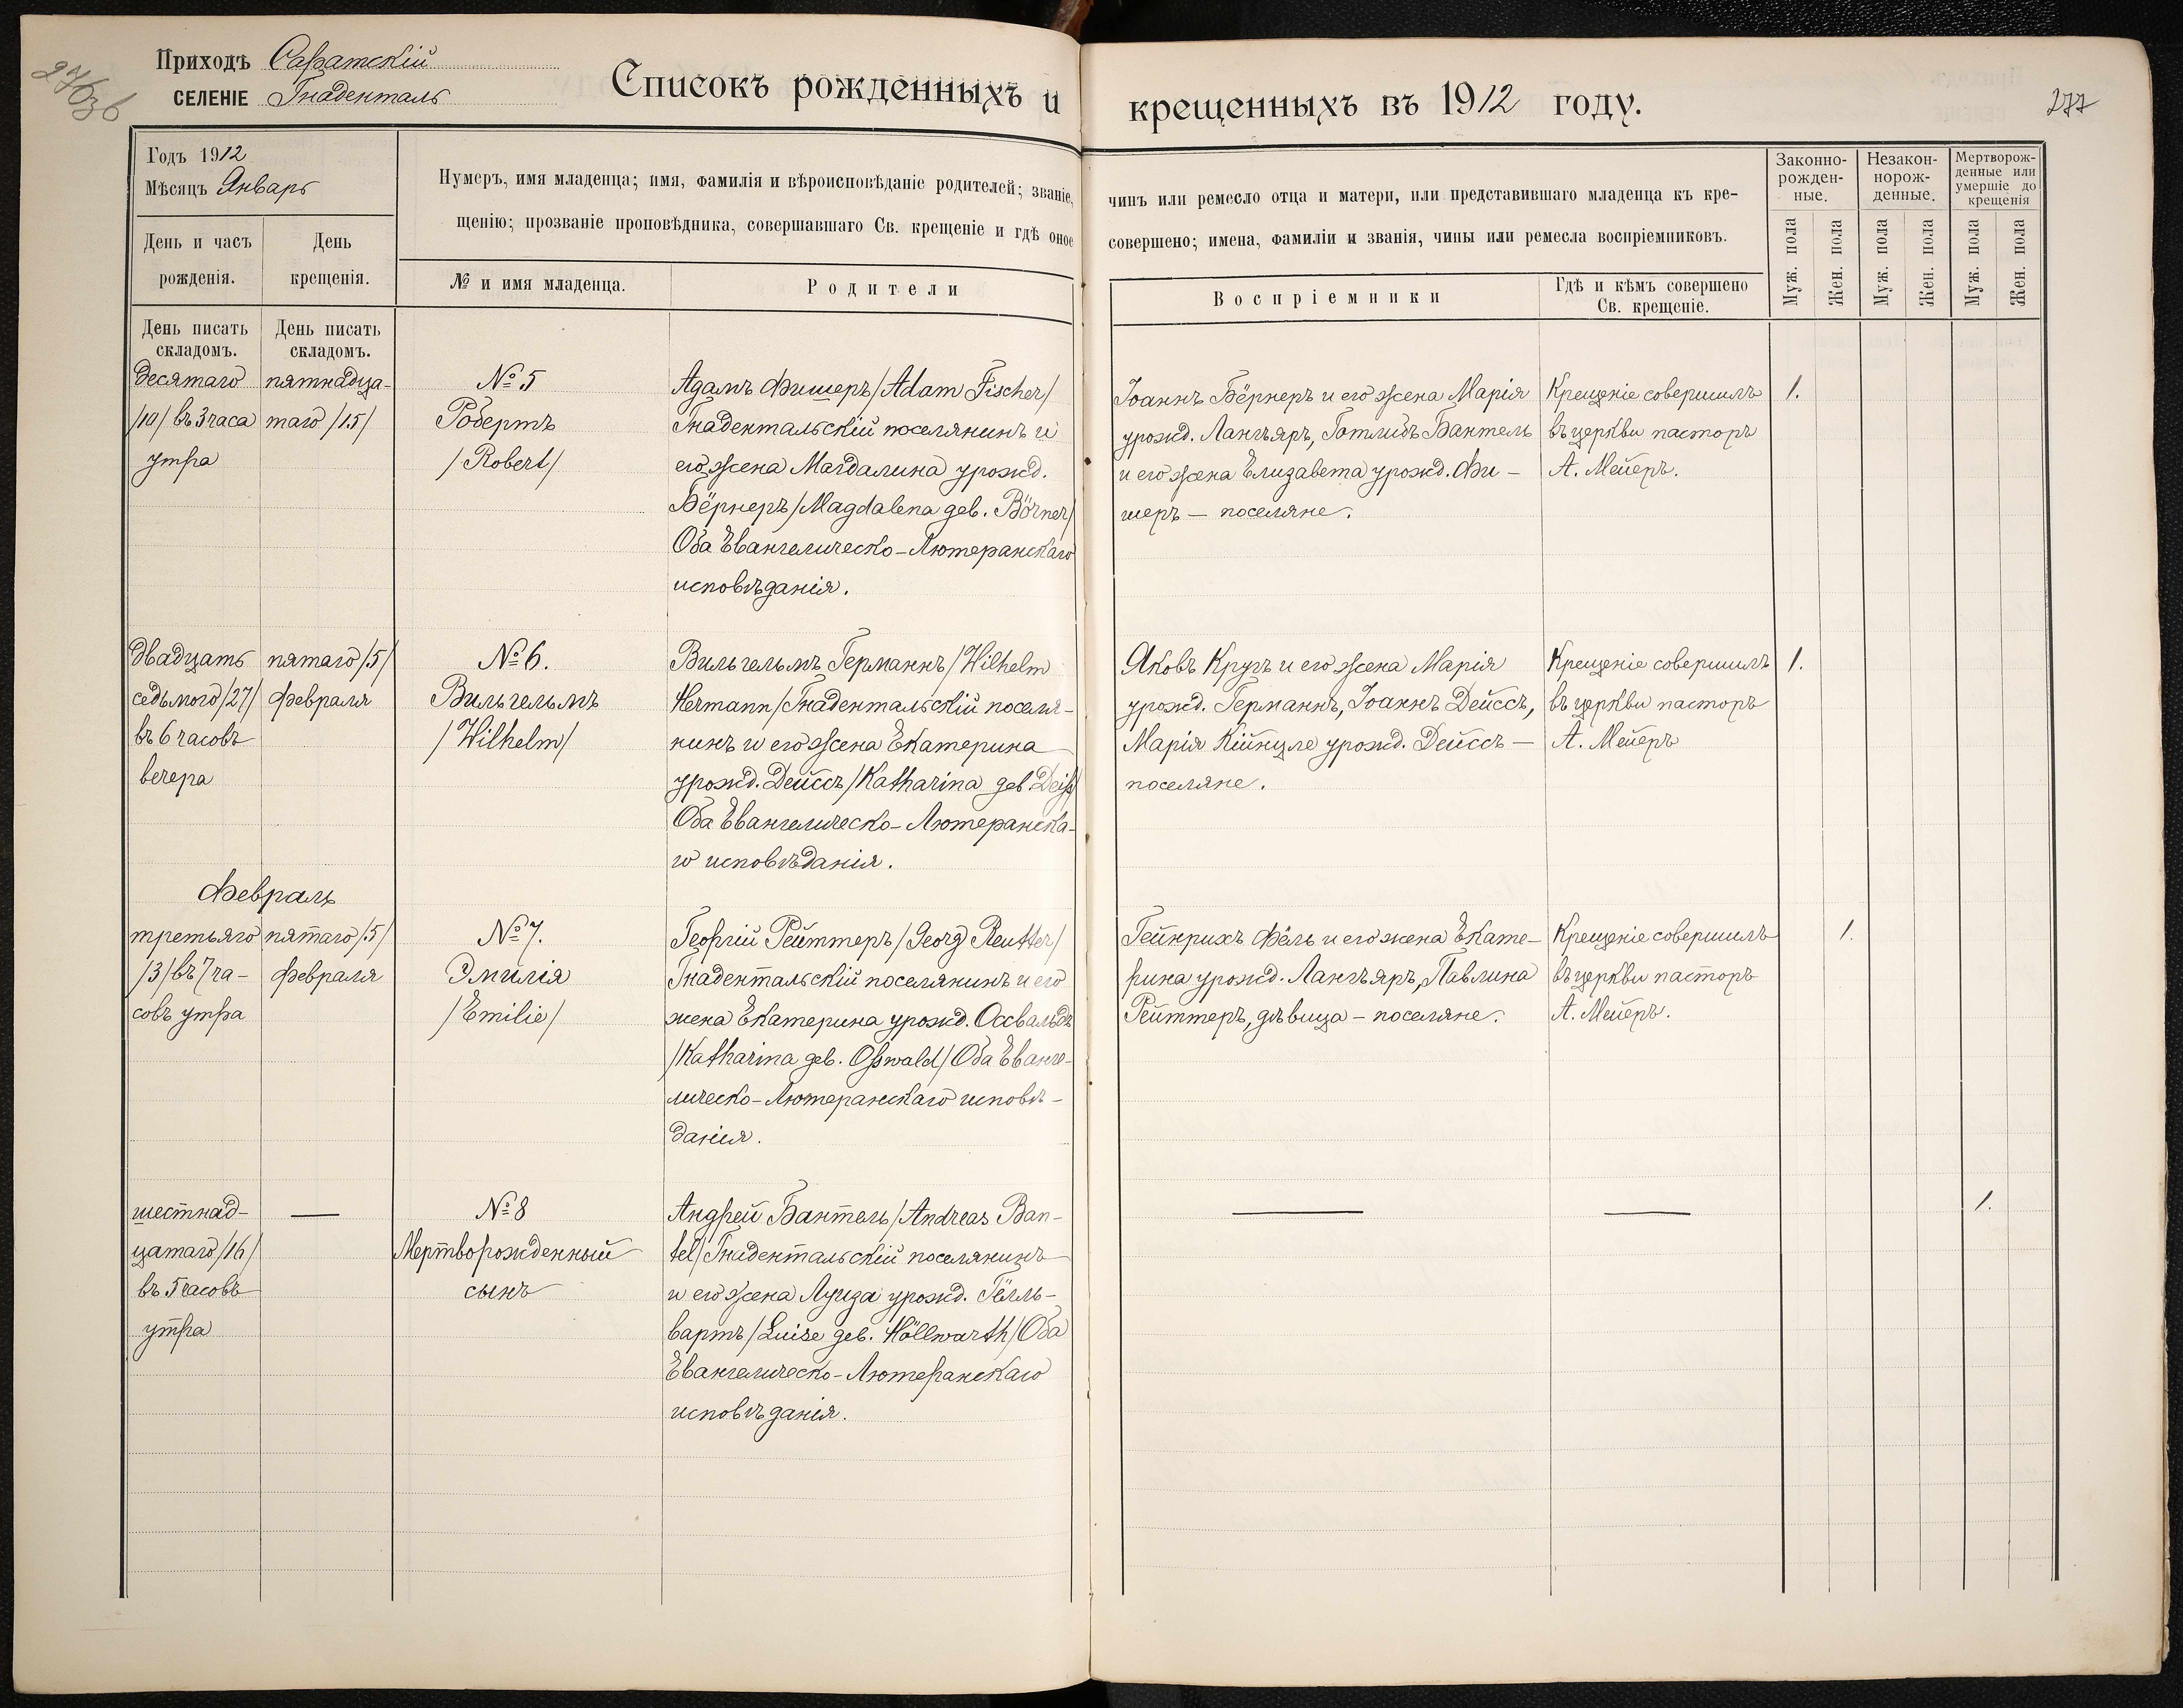 Приходъ Саратскій
СЕЛЕНІЕ Гнаденталь
Списокъ рожденныхъ и крещенныхъ въ 1912 году.
277
Годъ 1912
Мѣсяцъ Январь
Нумеръ, имя младенца; имя, фамилія и вѣроисповѣданіе родителей; званіе, чинъ или ремесло отца и матери, или представившаго младенца къ кре-
щенію; прозваніе проповѣдника, совершавшаго Св. крещеніе и гдѣ оное совершено; имена, фамиліи и званія, чины или ремесла воспріемниковъ.
Законно-
рожден-
ные.
Незакон-
норож-
денные.
Мертворож-
денные или
умершіе до
крещенія
Муж. пола
Жен. пола
Муж. пола
Жен. пола
Муж. пола
Жен. пола
День и часъ
рожденія.
День
крещенія.
№ и имя младенца.
Родители
Воспріемники
Гдѣ и кѣмъ совершено
Св. крещеніе.
День писать
складомъ.
День писать
складомъ.
десятаго
/10/ въ 3 часа
утра
пятнадца-
таго /15/
№ 5
Робертъ
/Robert/
Адамъ Фишеръ /Adam Fischer/
Гнадентальскій поселянинъ и
его жена Магдалина урожд.
Бёрнеръ /Magdalena geb. Börner/
Оба Евангелическо-Лютеранскаго
исповѣданія.
Іоаннъ Бёрнеръ и его жена Марія
урожд. Лангъяръ, Готлибъ Бантель
и его жена Елизавета урожд. Фи-
шеръ — поселяне.
Крещеніе совершилъ
въ церкви пасторъ
А. Мейеръ.
1.
двадцать
седьмого /27/
въ 6 часовъ
вечера
пятаго /5/
февраля
№ 6.
Вильгельмъ
/Wilhelm/
Вильгельмъ Германнъ /Wilhelm
Hermann/ Гнадентальскій поселя-
нинъ и его жена Екатерина
урожд. Дейссъ /Katharina geb. Deiß/
Оба Евангелическо-Лютеранска-
го исповѣданія.
Яковъ Кругъ и его жена Марія
урожд. Германнъ, Іоаннъ Дейссъ,
Марія Кійнцле урожд. Дейссъ —
поселяне.
Крещеніе совершилъ
въ церкви пасторъ
А. Мейеръ
1.
Февраль
третьяго
/3/ въ 7 ча-
совъ утра
пятаго /5/
февраля
№ 7.
Эмилія
/Emilie/
Георгій Рейттеръ /Georg Reutter/
Гнадентальскій поселянинъ и его
жена Екатерина урожд. Оссвальдъ
/Katharina geb. Oßwald/ Оба Еванге-
лическо-Лютеранскаго исповѣ-
данія.
Гейнрихъ Фёль и его жена Екате-
рина урожд. Лангъяръ, Павлина
Рейттеръ, дѣвица — поселяне.
Крещеніе совершилъ
въ церкви пасторъ
А. Мейеръ.
1.
шестнад-
цатаго /16/
въ 5 часовъ
утра
—
№ 8
Мертворожденный
сынъ
Андрей Бантель /Andreas Ban-
tel/ Гнадентальскій поселянинъ
и его жена Луиза урожд. Гёлль-
вартъ /Luise geb. Höllwarth/ Оба
Евангелическо-Лютеранскаго
исповѣданія.
—
—
1.